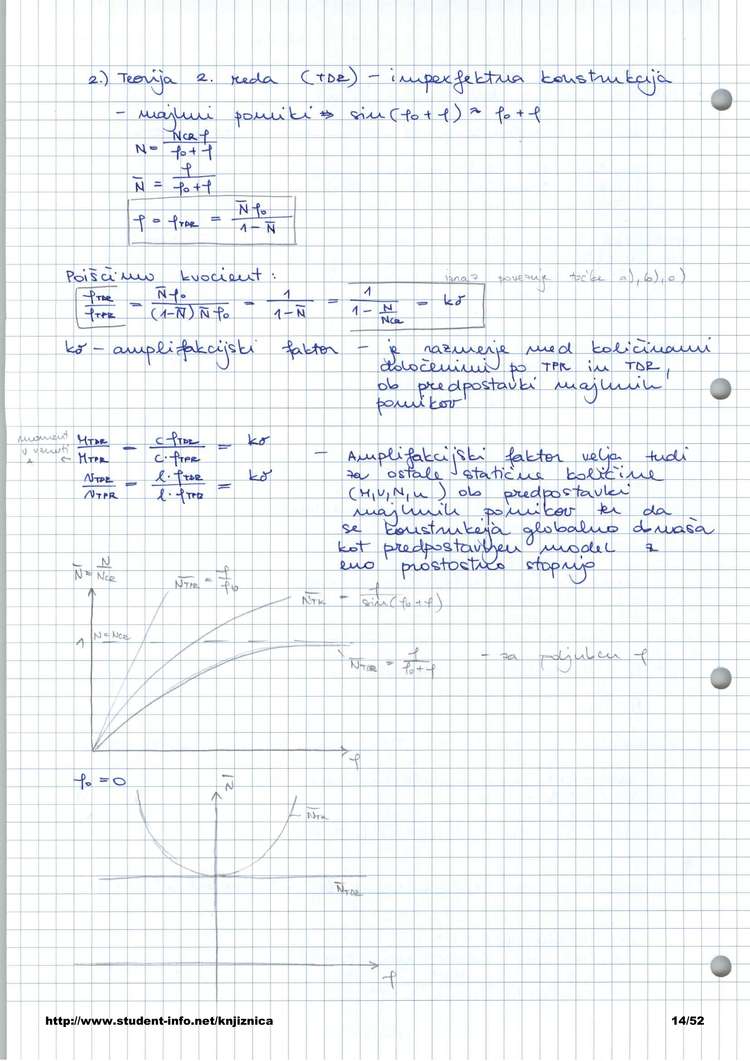 2.) Teorija 2. reda (TDR) – imperfektna konstrukcija
– majhni pomiki ⇒ sin(φ₀+φ) ≈ φ₀+φ
N = NCR φ / φ₀+φ
N̄ = φ / φ₀+φ
φ = φTDR = N̄φ₀ / 1–N̄
Poiščimo kvocient:
točke a), b), c)
φTDR / φTPR = N̄φ₀ / (1–N̄) N̄φ₀ = 1 / 1–N̄ = 1 / 1– N/NCR = kσ
kσ – amplifakcijski faktor – je razmerje med količinami
določenimi po TPR in TDR,
ob predpostavki majhnih
pomikov
moment
v vzmeti
MTDR / MTPR = c·φTDR / c·φTPR = kσ
NTDR / NTPR = l·φTDR / l·φTPR = kσ
– Amplifakcijski faktor velja tudi
za ostale statične količine
(M,V,N,u) ob predpostavki
majhnih pomikov ter da
se konstrukcija globalno obnaša
kot predpostavljen model z
eno prostostno stopnjo
N̄ = N/NCR
N̄TPR = φ/φ₀
N̄TK = φ / sin(φ₀+φ)
1
N = NCR
N̄TDR = φ / φ₀+φ – za poljuben φ
φ
φ₀ = 0
N̄
N̄TK
N̄TDR
φ
http://www.student-info.net/knjiznica
14/52